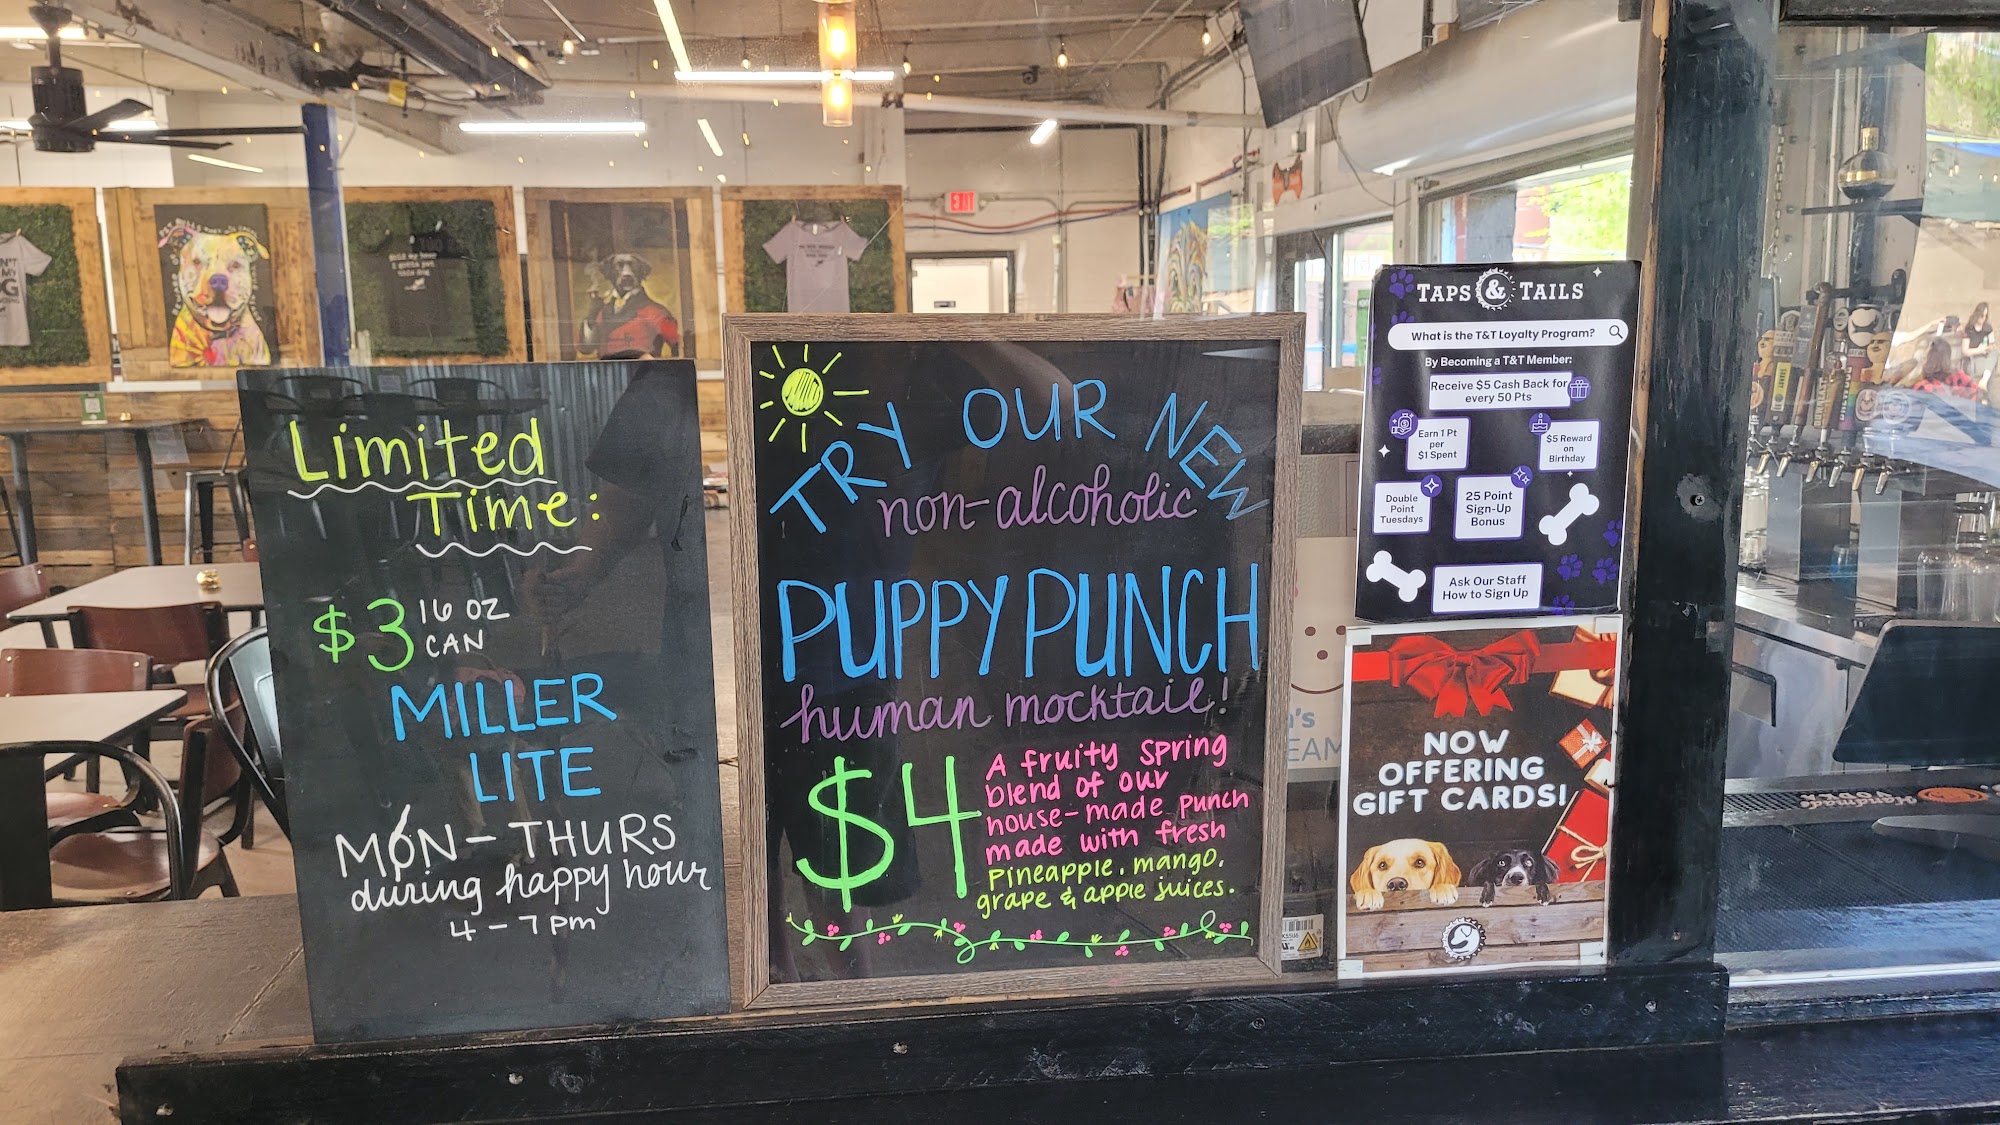 Limited
Time:
$3 16 OZ
CAN
MILLER
LITE
MON - THURS
during happy hour
4 - 7 pm
TRY OUR NEW
non-alcoholic
PUPPY PUNCH
human mocktail!
$4
A fruity spring
blend of our
house-made punch
made with fresh
pineapple, mango,
grape & apple juices.
TAPS & TAILS
What is the T&T Loyalty Program?
By Becoming a T&T Member:
Receive $5 Cash Back for
every 50 Pts
Earn 1 Pt
per
$1 Spent
$5 Reward
on
Birthday
Double
Point
Tuesdays
25 Point
Sign-Up
Bonus
Ask Our Staff
How to Sign Up
NOW
OFFERING
GIFT CARDS!
Hold my beer
I gotta pet
this dog
EXIT
Handmade
VODKA